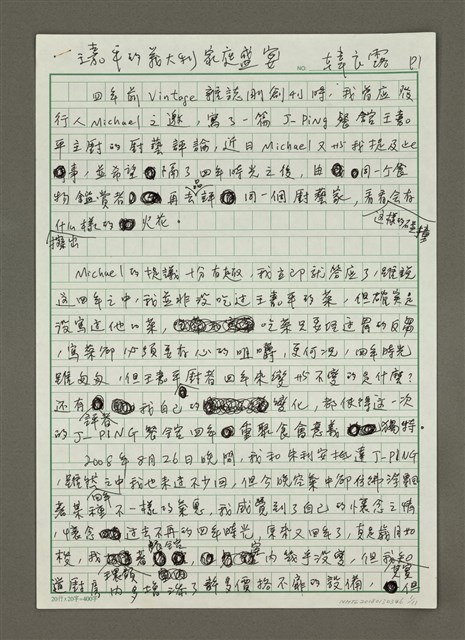 王嘉平的義大利家庭盛宴
NO.
韓良露 P1
四年前 Vintage 雜誌剛創刊時,我曾應發
行人 Michael 之邀,寫了一篇 J-Ping 餐館王嘉
平主廚的廚藝評論,近日 Michael 又對我提及此
事,並希望隔了四年時光之後,由同一個食
物鑑賞者再去品評同一個廚藝家,看看會有
什麼樣的火花。
這樣的碰撞
擦出
Michael 的提議十分有趣,我立即就答應了,雖說
這四年之中,我並非沒吃過王嘉平的菜,但確實是
沒寫過他的菜,吃菜只要經過胃的反芻
,寫菜卻必須要有心的咀嚼,更何況,四年時光
雖匆匆,但王嘉平廚者四年來變與不變的是什麼?
還有我自己的變化,都使得這一次
的 J-PING 餐館四年重聚食會意義獨特。
評者
2008年8月26日晚間,我和朱利安抵達 J-PING
,雖然之中我也來過不少回,但今晚空氣中卻彷彿
著某種不一樣的氣息,我感覺到了自己的懷念之情
四年
,懷念過去不再的四年時光,果然又四年了,真是歲月如
梭,我著內幾乎沒變,但我知
環顧
餐館
室
其實
道廚房內多增添了許多價格不廉的設備,但
20行×20字=400字